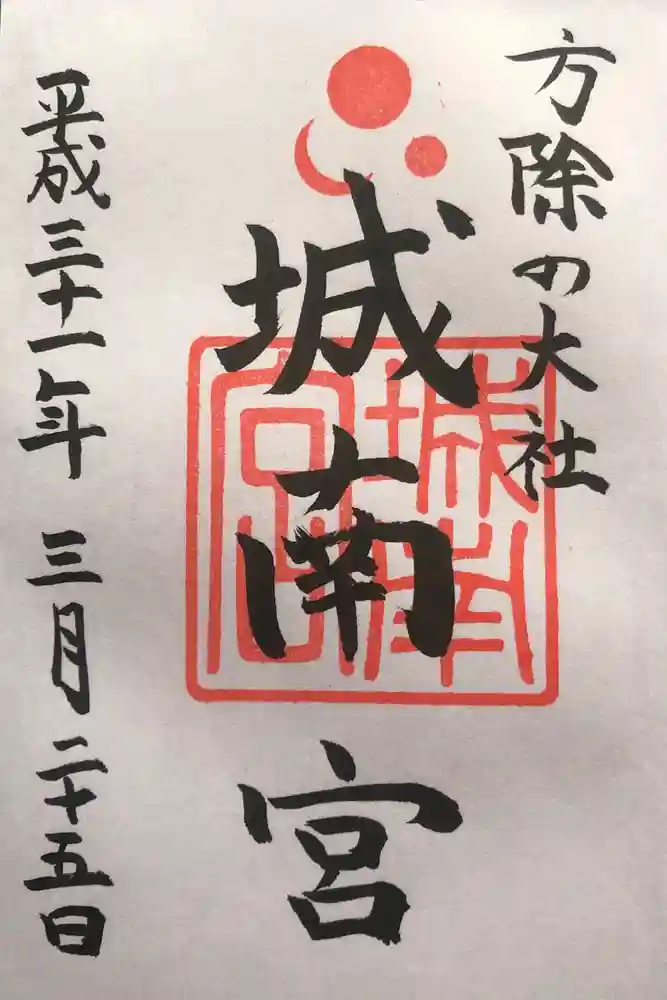 方除の大社
城南宮
城南宮
平成三十一年三月二十五日